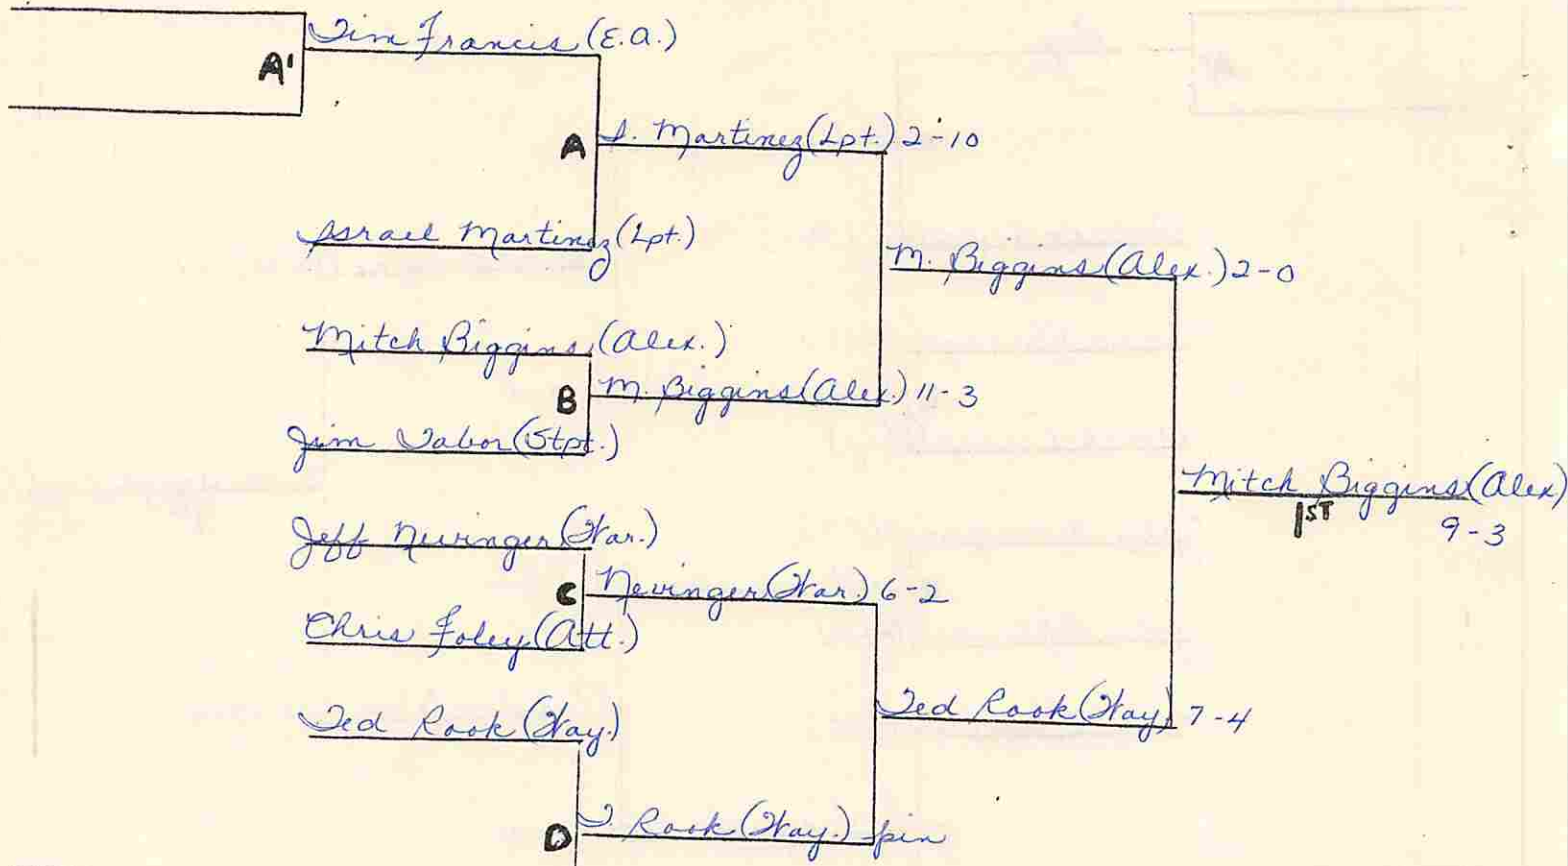 Tim Francis (E.A.)
A'
A
I. Martinez (Lpt.) 2-10
Israel Martinez (Lpt.)
M. Biggins (Alex.) 2-0
Mitch Biggins (Alex.)
B
M. Biggins (Alex.) 11-3
Jim Tabor (Stpt.)
Mitch Biggins (Alex)
1ST
9-3
Jeff Nevinger (War.)
C
Nevinger (War.) 6-2
Chris Foley (Att.)
Ted Rook (Way.)
Ted Rook (Way.) 7-4
D
T. Rook (Way.) pin